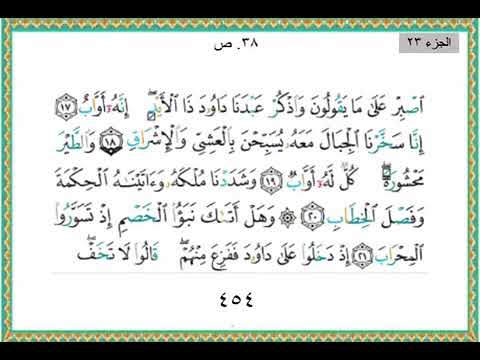 ٣٨. ص
الجزء ٢٣
ٱصۡبِرۡ عَلَىٰ مَا يَقُولُونَ وَٱذۡكُرۡ عَبۡدَنَا دَاوُۥدَ ذَا ٱلۡأَيۡدِۖ إِنَّهُۥٓ أَوَّابٌ ١٧
إِنَّا سَخَّرۡنَا ٱلۡجِبَالَ مَعَهُۥ يُسَبِّحۡنَ بِٱلۡعَشِيِّ وَٱلۡإِشۡرَاقِ ١٨ وَٱلطَّيۡرَ
مَحۡشُورَةٗۖ كُلّٞ لَّهُۥٓ أَوَّابٞ ١٩ وَشَدَدۡنَا مُلۡكَهُۥ وَءَاتَيۡنَٰهُ ٱلۡحِكۡمَةَ
وَفَصۡلَ ٱلۡخِطَابِ ٢٠ ۞ وَهَلۡ أَتَىٰكَ نَبَؤُاْ ٱلۡخَصۡمِ إِذۡ تَسَوَّرُواْ
ٱلۡمِحۡرَابَ ٢١ إِذۡ دَخَلُواْ عَلَىٰ دَاوُۥدَ فَفَزِعَ مِنۡهُمۡۖ قَالُواْ لَا تَخَفۡۖ
٤٥٤